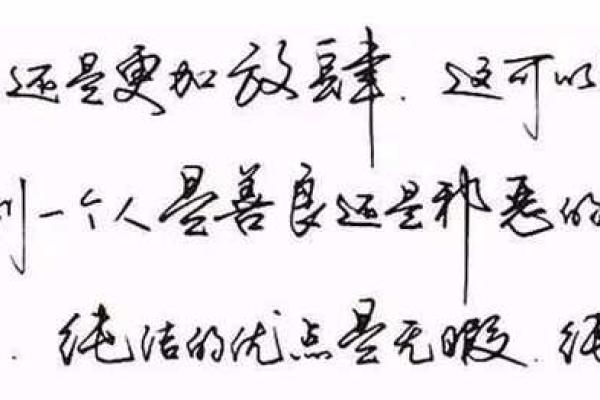 还是更加放肆.这可以
别一个人是善良还是邪恶的
.纯洁的优点是无暇.纯